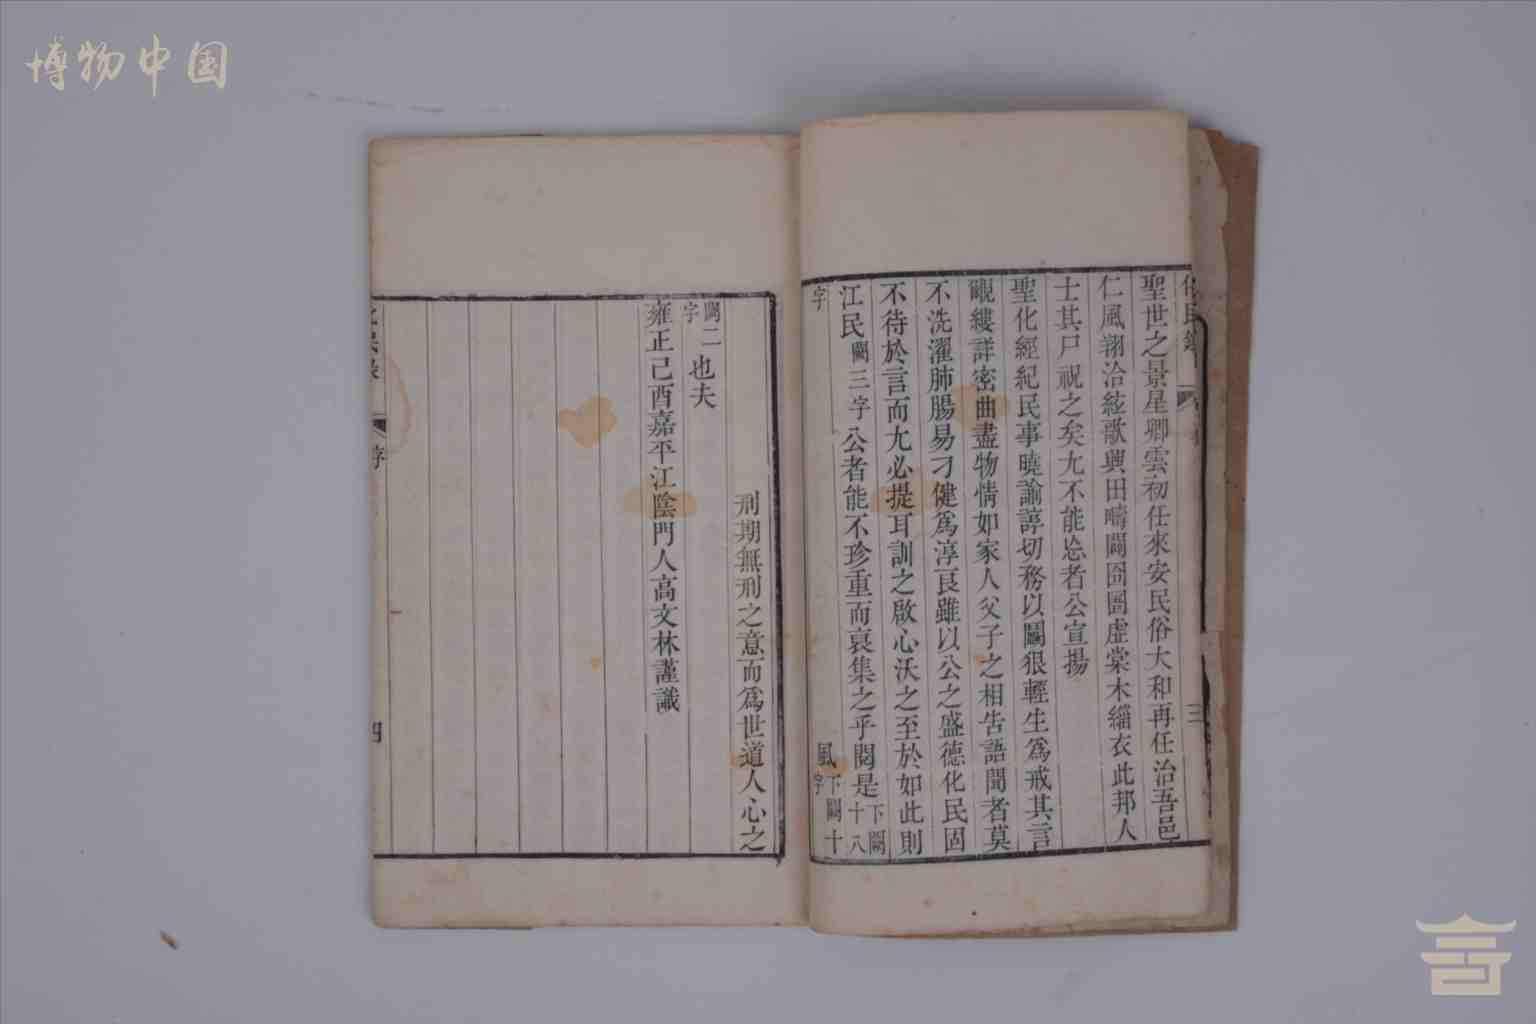 博物中国
化民錄
三
聖世之景星卿雲初任來安民俗大和再任治吾邑
仁風翔洽絃歌興田疇闢囹圄虛棠木緇衣此邦人
士其尸祝之矣尤不能忘者公宣揚
聖化經紀民事曉諭諄切務以鬭狠輕生爲戒其言
覼縷詳密曲盡物情如家人父子之相告語聞者莫
不洗濯肺腸易刁健爲淳良雖以公之盛德化民固
不待於言而尤必提耳訓之啟心沃之至於如此則
江民闕三字公者能不珍重而裒集之乎閱是下闕十八
字 風下闕十字
刑期無刑之意而爲世道人心之
闕二字也夫
雍正己酉嘉平江陰門人高文林謹識
民錄
序
四